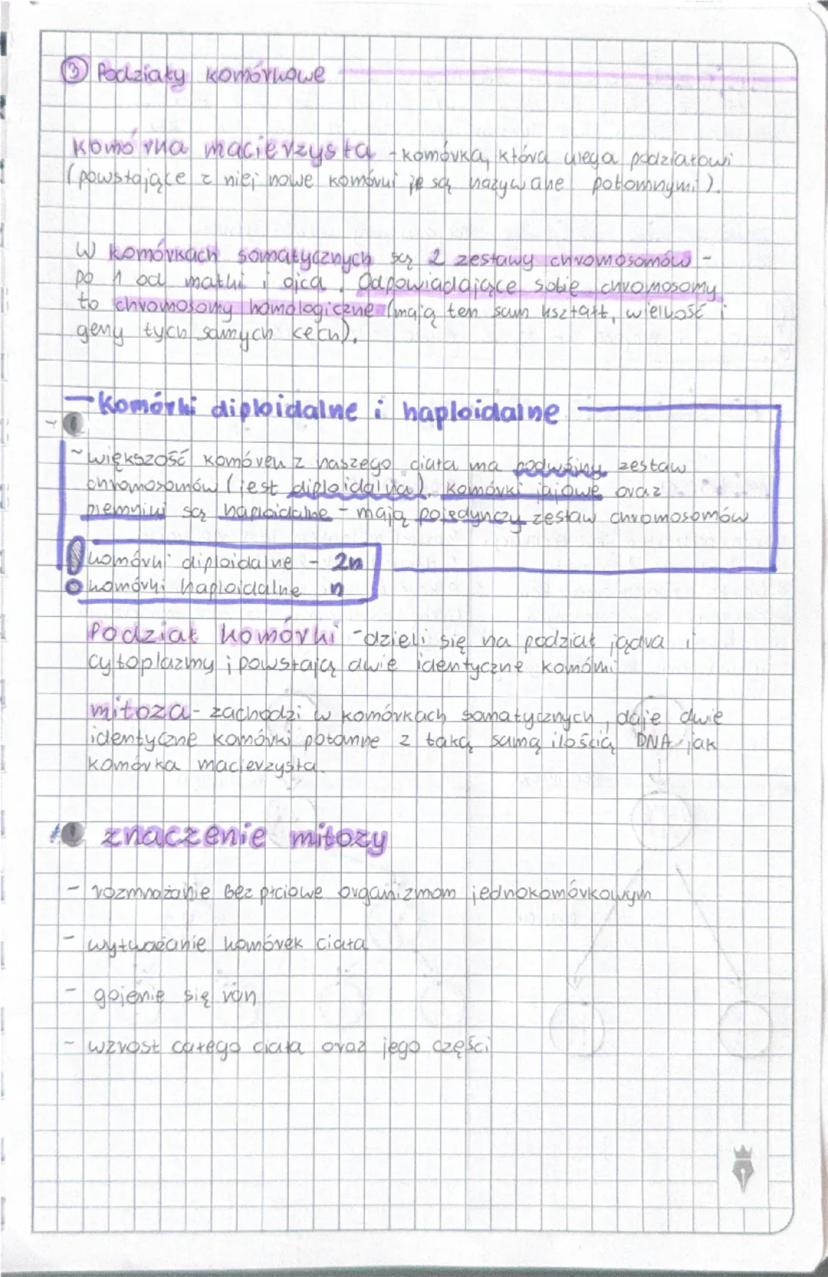 ③ Podziały komórkowe
Komórka macierzysta - komórka, która ulega podziałowi
(powstające z niej nowe komórki są nazywane potomnymi).
W komórkach somatycznych są 2 zestawy chromosomów -
po 1 od matki i ojca. Odpowiadające sobie chromosomy
to chromosomy homologiczne (mają ten sam kształt, wielkość i
geny tych samych cech).
Komórki diploidalne i haploidalne
~większość komórek z naszego ciała ma podwójny zestaw
chromosomów (jest diploidalna). Komórki jajowe oraz
plemniki są haploidalne - mają pojedynczy zestaw chromosomów
komórki diploidalne - 2n
komórki haploidalne n
Podział komórki - dzieli się na podział jądra i
cytoplazmy i powstają dwie identyczne komórki
mitoza - zachodzi w komórkach somatycznych, daje dwie
identyczne komórki potomne z taką samą ilością DNA jak
komórka macierzysta.
znaczenie mitozy
- rozmnażanie bezpłciowe organizmom jednokomórkowym
- wytważanie komórek ciała
- gojenie się ran
- wzrost całego ciała oraz jego części